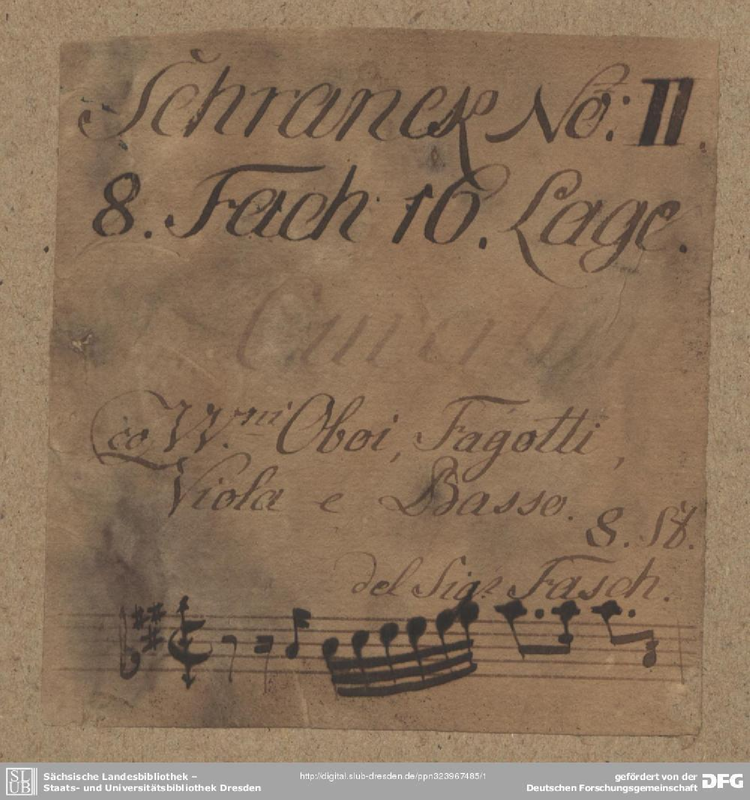 Schranck No: II.
8. Fach 16. Lage.
co VV.ni Oboi, Fagotti,
Viola e Basso.
8. St.
del Sigr Fasch.
SLUB
Sächsische Landesbibliothek –
Staats- und Universitätsbibliothek Dresden
http://digital.slub-dresden.de/ppn323967485/1
gefördert von der
Deutschen Forschungsgemeinschaft
DFG